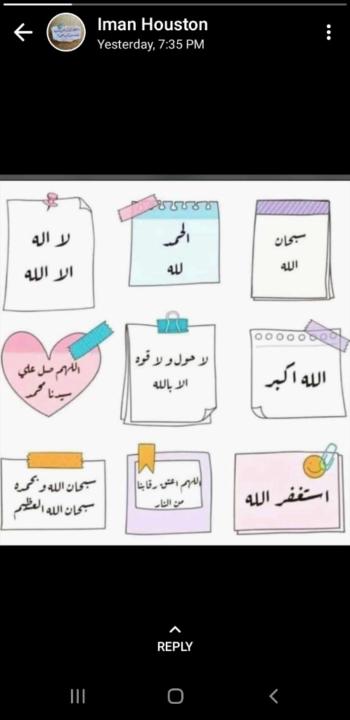 Iman Houston
Yesterday, 7:35 PM
سبحان
الله
الحمد
لله
لا اله
الا الله
الله اكبر
لا حول و لا قوه
الا بالله
اللهم صل علي
سيدنا محمد
استغفر الله
اللهم اعتق رقابنا
من النار
سبحان الله و بحمده
سبحان الله العظيم
REPLY